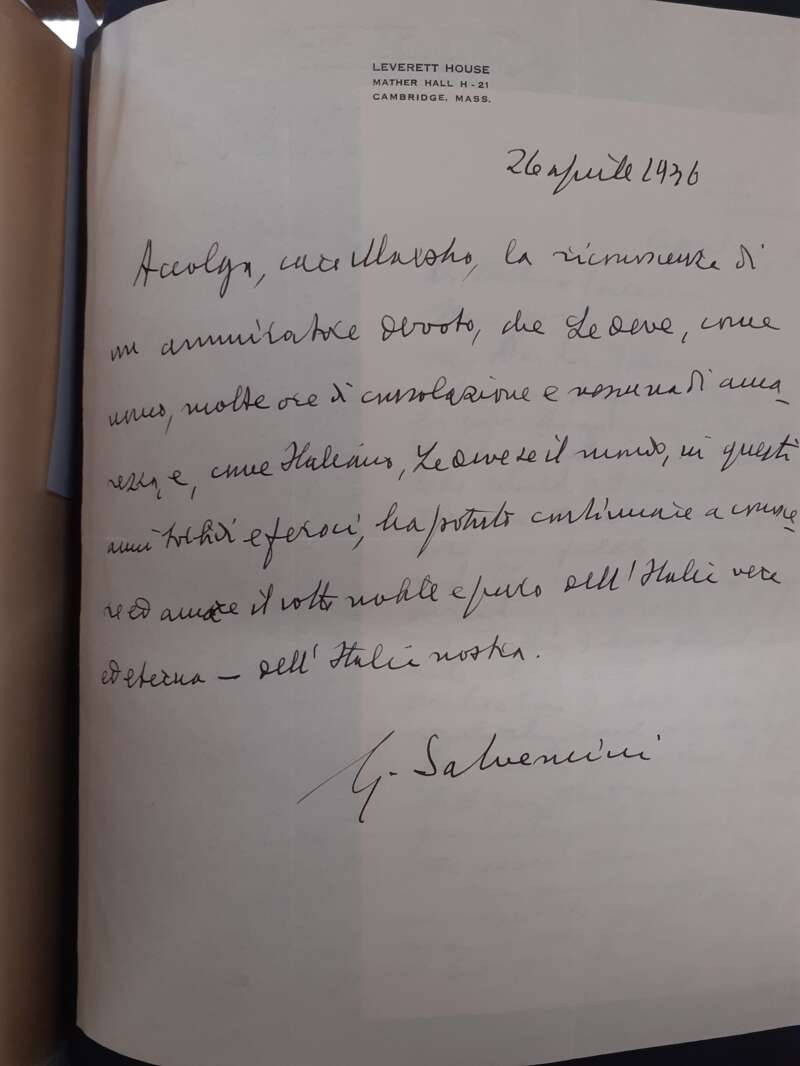 LEVERETT HOUSE
MATHER HALL H-21
CAMBRIDGE, MASS.
26 aprile 1936
Accolga, caro Maestro, la riconoscenza di
un ammiratore devoto, che Le deve, come
uomo, molte ore di consolazione e nessuna di ama-
rezza, e, come Italiano, Le deve se il mondo, in questi
anni torbidi e feroci, ha potuto continuare a conosce-
re ed amare il volto nobile e puro dell'Italia vera
ed eterna — dell'Italia nostra.
G. Salvemini